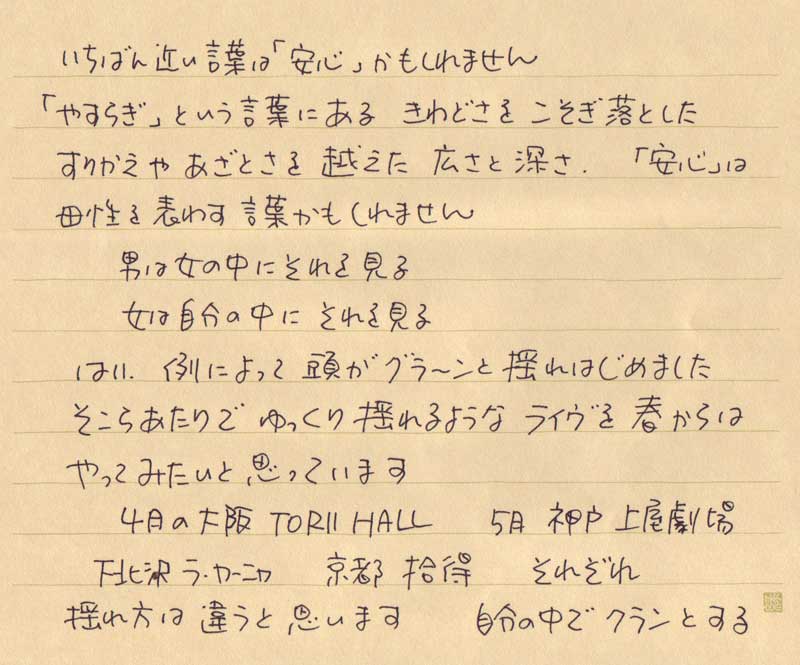 いちばん近い言葉は「安心」かもしれません
「やすらぎ」という言葉にある きわどさを こそぎ落とした
すりかえや あざとさを 越えた 広さと深さ. 「安心」は
母性を表わす言葉かもしれません
男は女の中にそれを見る
女は自分の中に それを見る
はい. 例によって 頭が グラ〜ンと 揺れはじめました
そこらあたりで ゆっくり 揺れるような ライヴを 春からは
やってみたいと思っています
4月の大阪 TORII HALL 5月 神戸 上屋劇場
下北沢 ラ・カーニャ 京都 拾得 それぞれ
揺れ方は 違うと思います 自分の中で クランとする